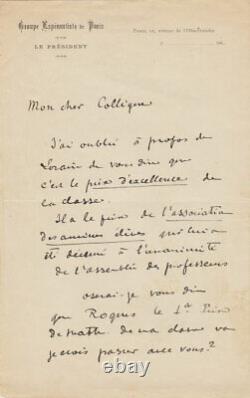 Groupe Espérantiste de Paris
LE PRÉSIDENT
Mon cher Collègue
J'ai oublié à propos de
Lorain de vous dire que
c'est le prix d'excellence de
la classe.
Il a le prix de l'association
des anciens élèves qui lui a
été décerné à l'unanimité
de l'assemblée des professeurs
oserai-je vous dire
que Rogers le 1er Prix
de math. de ma classe va
je crois passer avec vous?
ebay